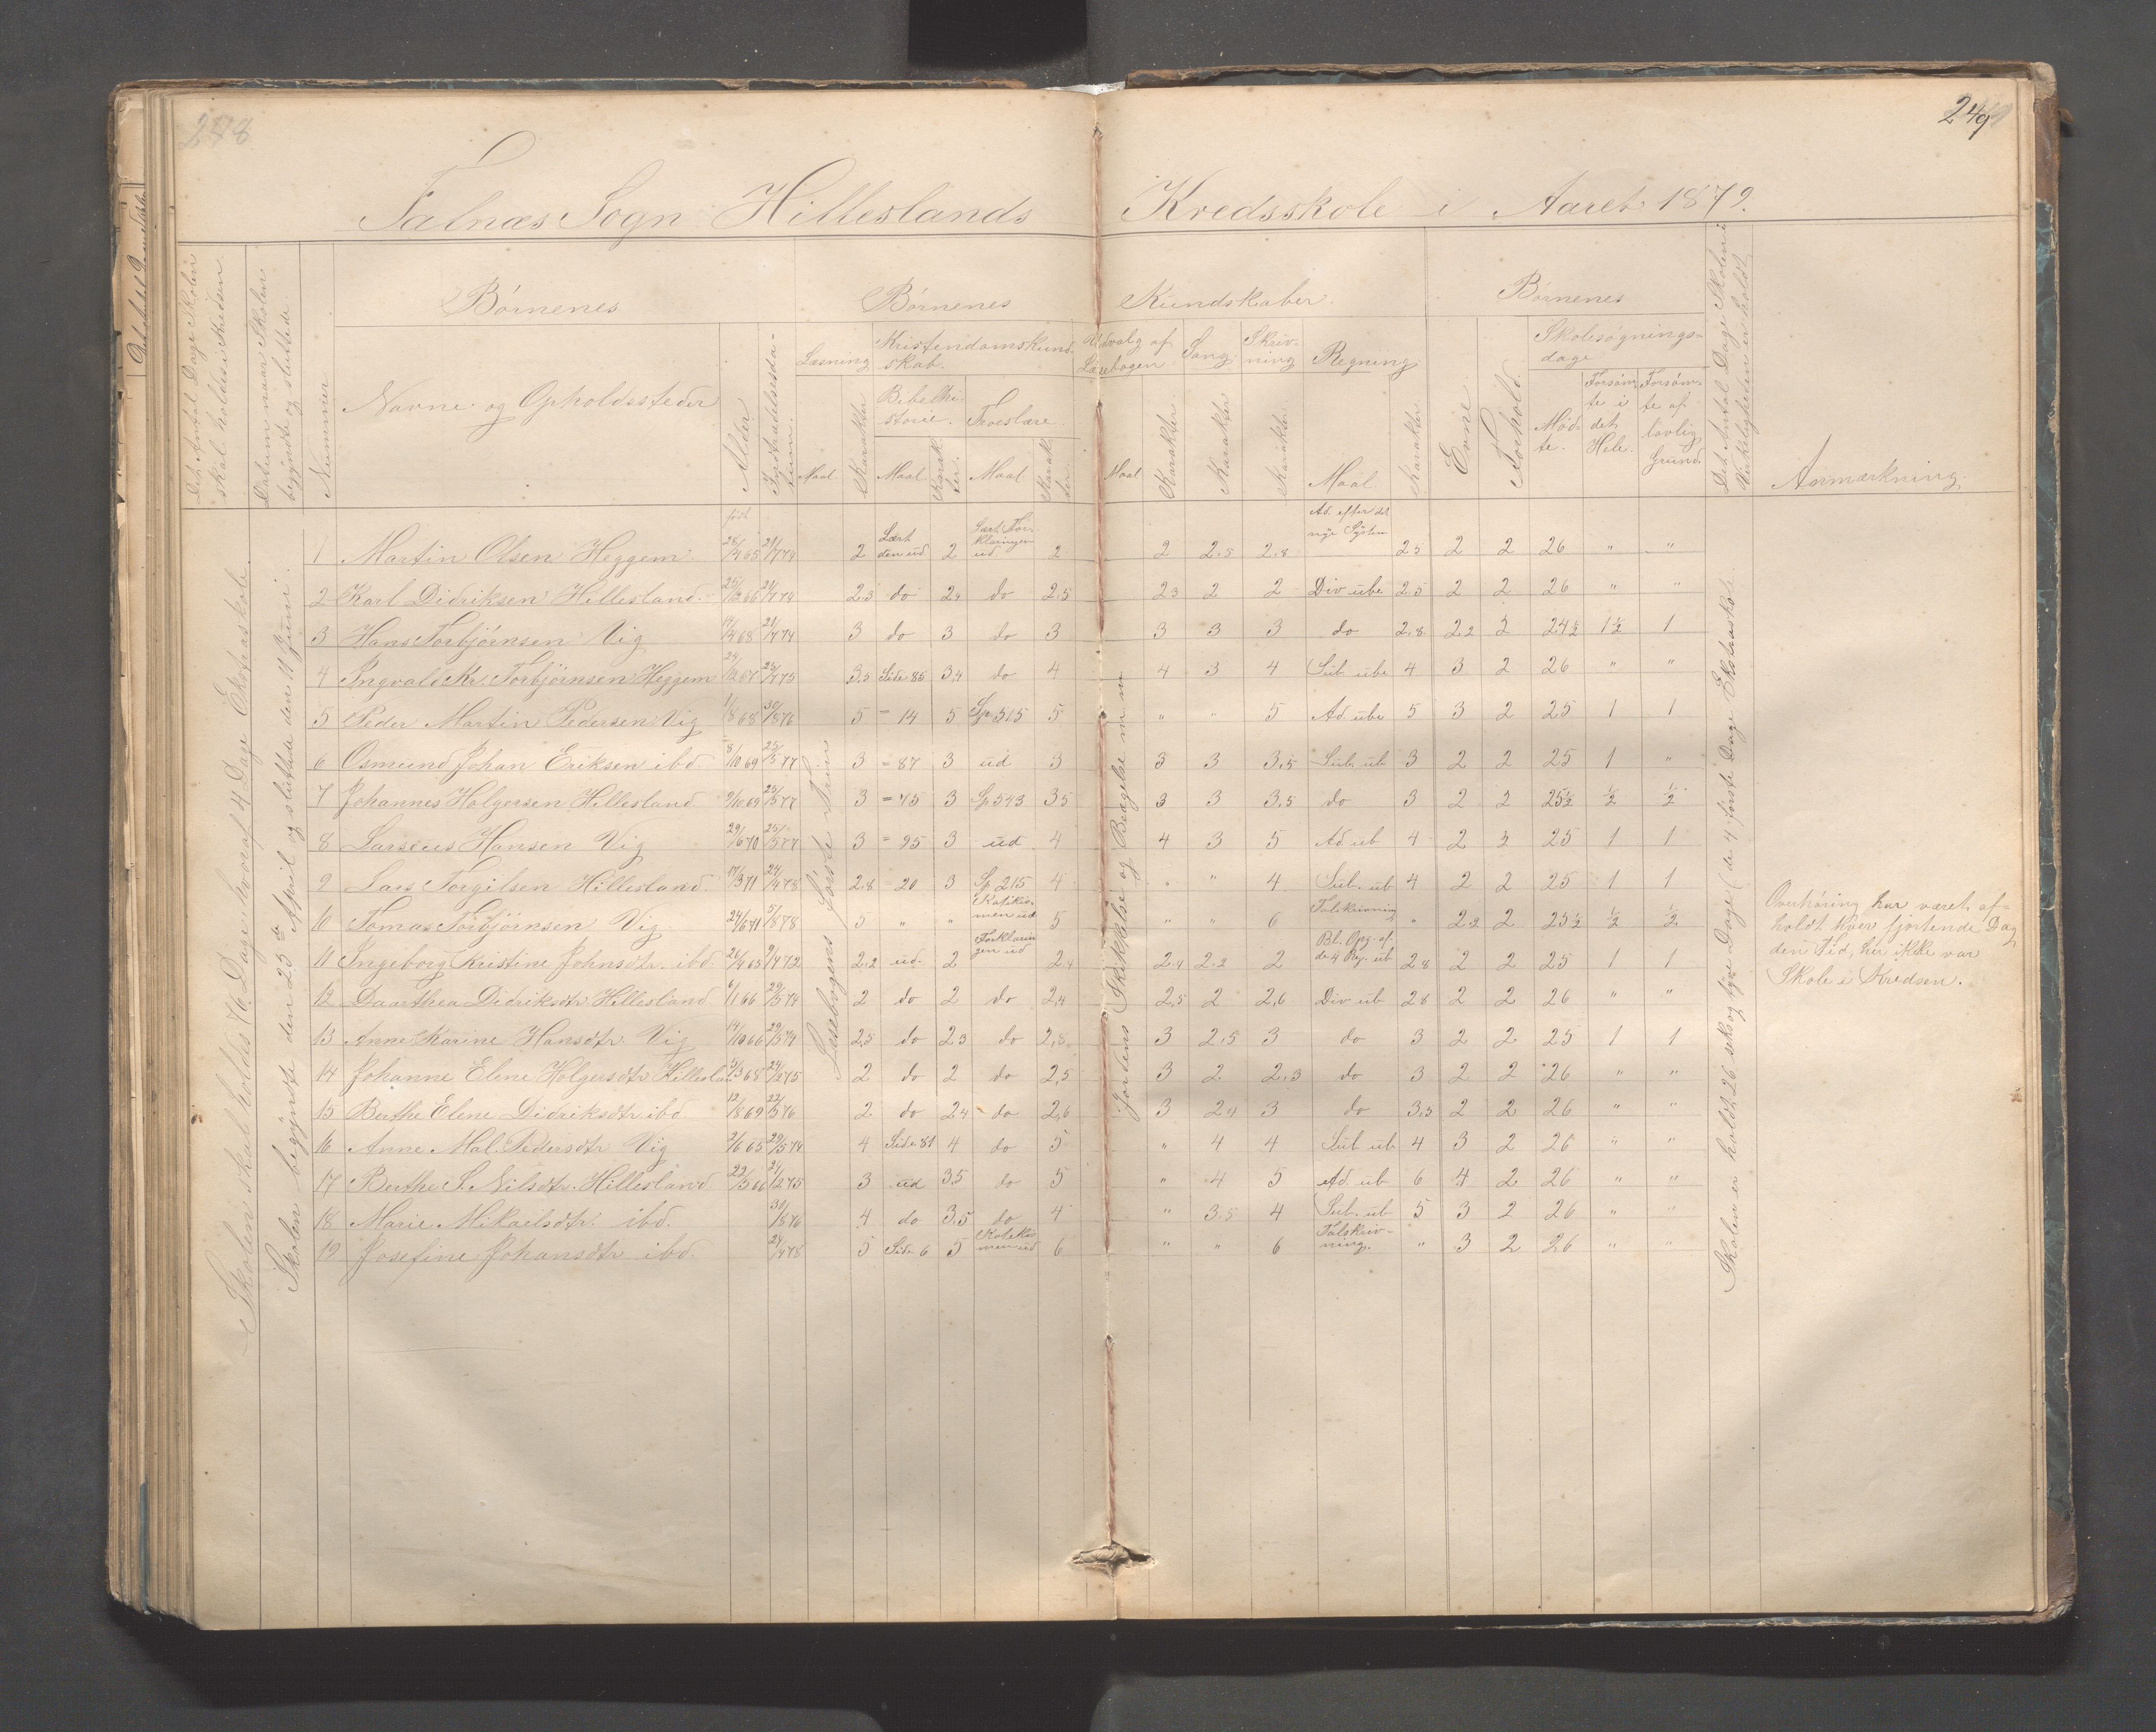 248
249
Falnæs Sogn Hilleslands Kredsskole i Aaret 1879.
Det Antal Dage Skolen skal holdes i Kredsen.
Datum naar Skolen begyndte og sluttede
Nummer
Børnenes
Navne og Opholdssteder
Alder
Indtrædelsesdatum.
Børnenes Kundskaber.
Læsning
Kristendomskundskab.
Udvalg af Læsebogen
Sang
Skrivning
Regning
Bibelhistorie.
Troeslære.
Maal
Karakter
Maal
Karakter.
Maal
Karakter.
Maal
Karakter.
Karakter
Karakter.
Maal
Karakter
Børnenes
Evne.
Forhold.
Skolesøgningsdage
Mødte.
Forsømte i det Hele.
Forsømte af lovlig Grund.
Det Antal Dage Skolen i Virkeligheden er holdt.
Anmærkning.
Skolen skal holdes 76 Dage, hvoraf 4 Dage Ekstraskole.
Skolen begyndte den 25de April og sluttede den 11 Juni.
Læsebogens første Trin
Jordens Skikkelse og Bevægelse m. m.
Skolen er holdt 26 seks og tyve Dage (de 4 første Dage Ekstraskole.
født
1 Martin Olsen Heggem 28/4 65 21/7 74 2 Lært den ud. 2 Lært Forklaringen ud 2 2 2.5 2.8 Ad. efter det nye System 2.5 2 2 26 " "
2 Karl Didriksen Hillesland. 25/2 66 21/7 74 2.3 do 2.4 do 2.5 2.3 2 2 Div ube 2.5 2 2 26 " "
3 Hans Torbjørnsen Vig 17/4 68 21/7 74 3 do 3 do 3 3 3 3 do 2.8 2.2 2 24½ 1½ 1
4 Ingvald Kr. Torbjørnsen Heggem 3.5 Side 85 3,4 do 4 4 3 4 Sub. ube 4 3 2 26 " "
5 Peder Martin Pedersen Vig 1/8 68 30/8 76 5 = 14 5 Sp 515 5 " " 5 Ad. ube 5 3 2 25 1 1
6 Osmund Johan Eriksen ibd. 8/10 69 25/5 77 3 = 87 3 ud 3 3 3 3.5 Sub. ub 3 2 2 25 1 "
7 Johannes Holgersen Hillesland 9/10 69 25/5 77 3 = 75 3 Sp 543 3.5 3 3 3.5 do 3 2 2 25½ ½ ½
8 Larseus Hansen Vig 29/6 70 25/5 77 3 = 95 3 ud 4 4 3 5 Ad. ub 4 2 2 25 1 1
9 Lars Torgilsen Hillesland. 17/3 71 24/4 78 2.8 = 20 3 Sp 215 4 " " 4 Sub. ub 4 2 2 25 1 1
10 Tomas Torbjørnsen Vig 24/6 71 5/8 78 5 " " Katekismen ud 5 " " 6 Talskrivning " 2.2 2 25½ ½ ½
11 Ingeborg Kristine Johnsdtr. ibd. 26/4 65 9/4 72 2.2 ud. 2 Forklaringen ud 2.4 2.4 2.2 2 Bl. Opg. af de 4 Reg. ub 2.8 2 2 25 1 1
12 Daarthea Didriksdtr. Hillesland 6/1 66 29/5 74 2 do 2 do 2,4 2,5 2 2,6 Div ub 2.8 2 2 26 " "
13 Anne Karine Hansdtr. Vig 14/10 66 29/5 74 2,5 do 2.3 do 2,8 3 2,5 3 do 3 2 2 25 1 1
14 Johanne Elene Holgersdtr. Hillesland 5/3 68 24/2 75 2 do 2 do 2,5 3 2. 2.3 do 3 2 2 26 " "
15 Berthe Elene Didriksdtr. ibd 12/8 69 22/5 76 2. do 2.4 do 2,6 3 2.4 3 do 3.5 2 2 26 " "
16 Anne Mal. Pedersdtr Vig 2/6 65 29/5 74 4 Side 81 4 do 5 " 4 4 Sub ub 4 3 2 26 " "
17 Berthe S. Nilsdtr. Hillesland 22/5 66 24/2 75 3 ud 3.5 do 5 " 4 5 Ad. ub 6 4 2 26 " "
18 Marie Mikaelsdtr. ibd. 30/8 76 4 do 3,5 do 4 " 3.5 4 Sub. ub 5 3 2 26 " "
19 Josefine Johansdtr ibd. 24/4 78 5 Side 6 5 Katekismen ud 6 " " 6 Talskrivning. " 3 2 26 " "
Overhøring har været afholdt hver fjortende Dag
den Tid, her ikke var
Skole i Kredsen.